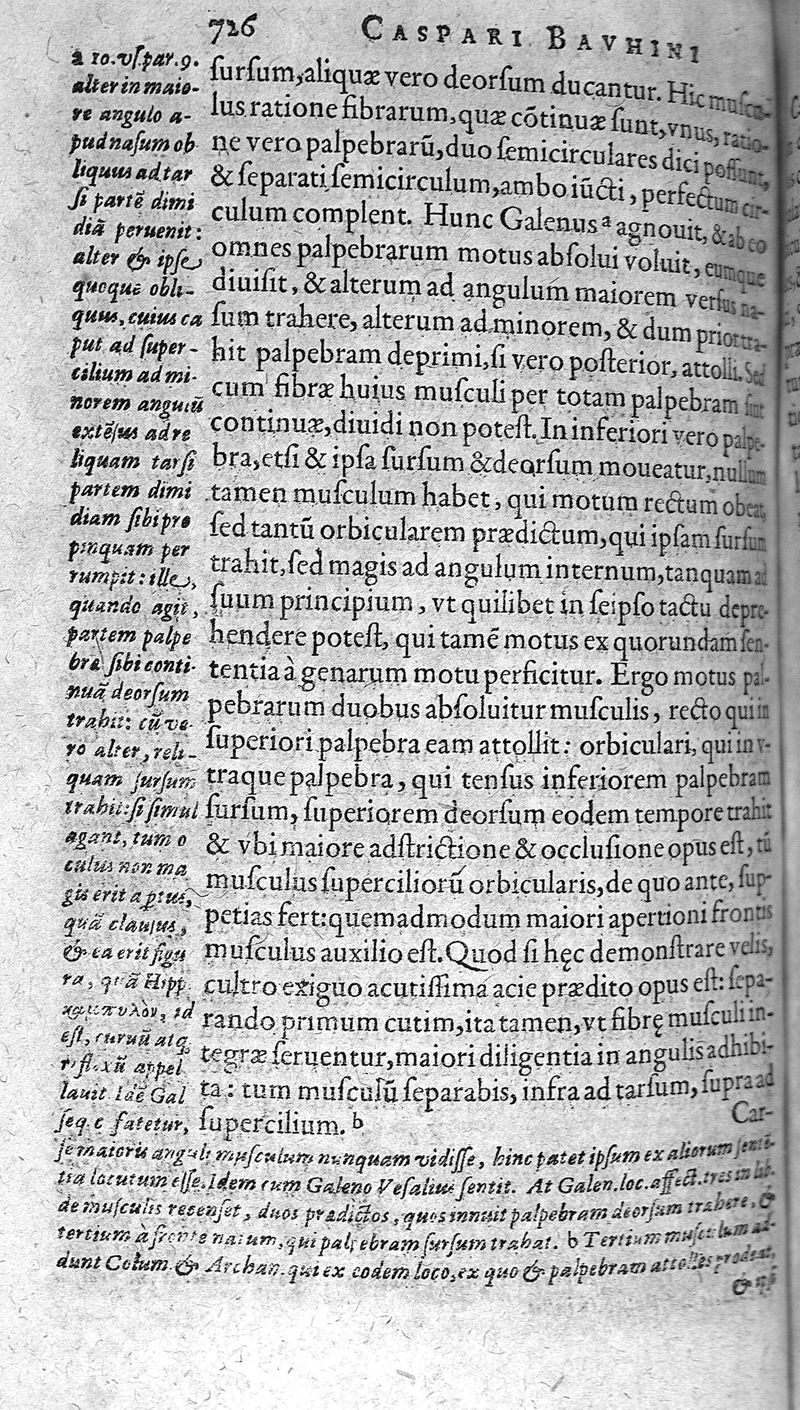 726 CASPARI BAVHINI
ſurſum, aliquæ vero deorſum ducantur. Hic muſcu-
lus ratione fibrarum, quæ cōtinuæ ſunt, vnus, ratio-
ne vero palpebrarū, duo ſemicirculares dici poſſunt,
& ſeparati ſemicirculum, ambo iūcti, perfectum cir-
culum complent. Hunc Galenus a agnouit, & ab eo
omnes palpebrarum motus abſolui voluit, eumque
diuiſit, & alterum ad angulum maiorem verſus na-
ſum trahere, alterum ad minorem, & dum prior tra-
hit palpebram deprimi, ſi vero poſterior, attolli. Sed
cum fibræ huius muſculi per totam palpebram ſint
continuæ, diuidi non poteſt. In inferiori vero palpe-
bra, etſi & ipſa ſurſum & deorſum moueatur, nullum
tamen muſculum habet, qui motum rectum obeat,
ſed tantū orbicularem prædictum, qui ipſam ſurſum
trahit, ſed magis ad angulum internum, tanquam ad
ſuum principium, vt quilibet in ſeipſo tactu depre-
hendere poteſt, qui tamē motus ex quorundam ſen-
tentia à genarum motu perficitur. Ergo motus pal-
pebrarum duobus abſoluitur muſculis, recto qui in
ſuperiori palpebra eam attollit: orbiculari, qui in v-
traque palpebra, qui tenſus inferiorem palpebram
ſurſum, ſuperiorem deorſum eodem tempore trahit
& vbi maiore adſtrictione & occluſione opus eſt, tū
muſculus ſuperciliorū orbicularis, de quo ante, ſup-
petias fert: quemadmodum maiori apertioni frontis
muſculus auxilio eſt. Quod ſi hęc demonſtrare velis,
cultro exiguo acutiſſima acie prædito opus eſt: ſepa-
rando primum cutim, ita tamen, vt fibrę muſculi in-
tegræ ſeruentur, maiori diligentia in angulis adhibi-
ta: tum muſculū ſeparabis, infra ad tarſum, ſupra ad
ſupercilium. b
Car-
a 10. vſ. par. 9.
alter in maio-
re angulo a-
pud naſum ob
liquus ad tar
ſi partē dimi
diā peruenit:
alter & ipſe
quoque obli-
quus, cuius ca
put ad ſuper-
cilium ad mi-
norem angulū
extēſus ad re
liquam tarſi
partem dimi
diam ſibi pro
pinquam per
rumpit: ille,
quando agit,
partem palpe
bræ ſibi conti-
nuā deorſum
trahit: cū ve-
ro alter, reli-
quam ſurſum
trahit: ſi ſimul
agant, tum o
culus non ma
gis erit aptus,
quā clauſus,
& ea erit figu
ra, quā Hipp.
καμπυλον, id
eſt, curuū atq.
rifl.xū appel
lauit. Idē Gal
ſeq. c fatetur,
ſe maioris anguli muſculum nunquam vidiſſe, hinc patet ipſum ex aliorum ſentē-
tia locutum eſſe. Idem cum Galeno Veſalius ſentit. At Galen. loc. affect. tres in lib.
de muſculis recenſet, duos prædictos, quos innuit palpebram deorſum trahere, &
tertium à fronte natum, qui palpebram ſurſum trahat. b Tertium muſculum ad-
dunt Colum. & Archan. qui ex eodem loco, ex quo & palpebram attolles prodeat,
&